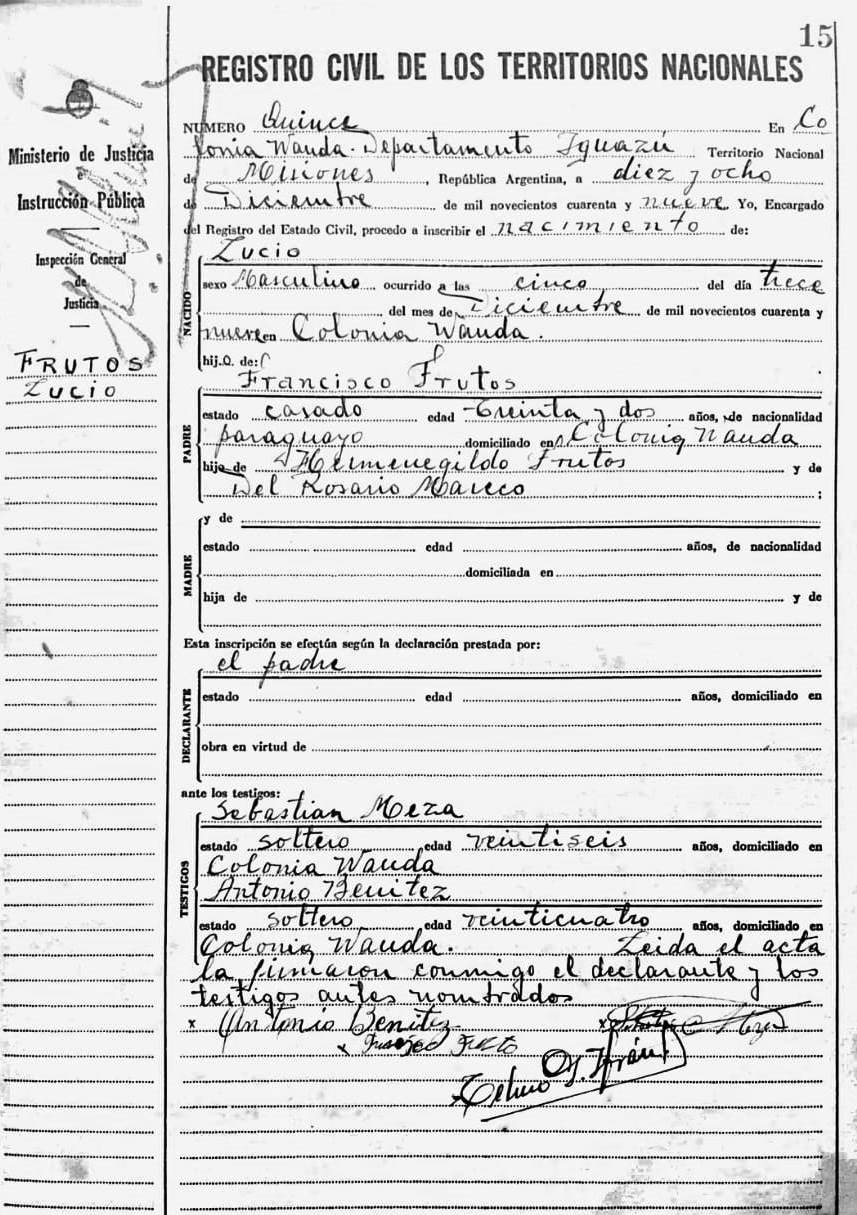 15
REGISTRO CIVIL DE LOS TERRITORIOS NACIONALES
Ministerio de Justicia
e
Instrucción Pública
Inspección General
de
Justicia
FRUTOS
Lucio
NUMERO Quince En Co
lonia Wanda. Departamento Iguazú Territorio Nacional
de Misiones, República Argentina, a diez y ocho
de Diciembre de mil novecientos cuarenta y nueve. Yo, Encargado
del Registro del Estado Civil, procedo a inscribir el nacimiento de:
NACIDO
Lucio
sexo Masculino ocurrido a las cinco del día trece
del mes de Diciembre de mil novecientos cuarenta y
nueve en Colonia Wanda.
hij.o. de:
PADRE
Francisco Frutos
estado casado edad treinta y dos años, de nacionalidad
paraguayo domiciliado en Colonia Wanda
hijo de Hermenegildo Frutos y de
Del Rosario Mareco ;
MADRE
y de
estado edad años, de nacionalidad
domiciliada en
hija de y de
Esta inscripción se efectúa según la declaración prestada por:
DECLARANTE
el padre
estado edad años, domiciliado en
obra en virtud de
ante los testigos:
TESTIGOS
Sebastian Meza
estado soltero edad veintiseis años, domiciliado en
Colonia Wanda
Antonio Benitez
estado soltero edad veinticuatro años, domiciliado en
Colonia Wanda. Leida el acta
la firmaron conmigo el declarante y los
testigos antes nombrados
x Antonio Benitez x
x